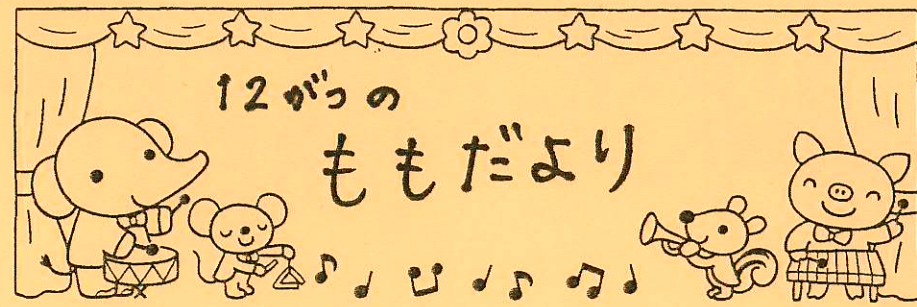 12がつの
ももだより